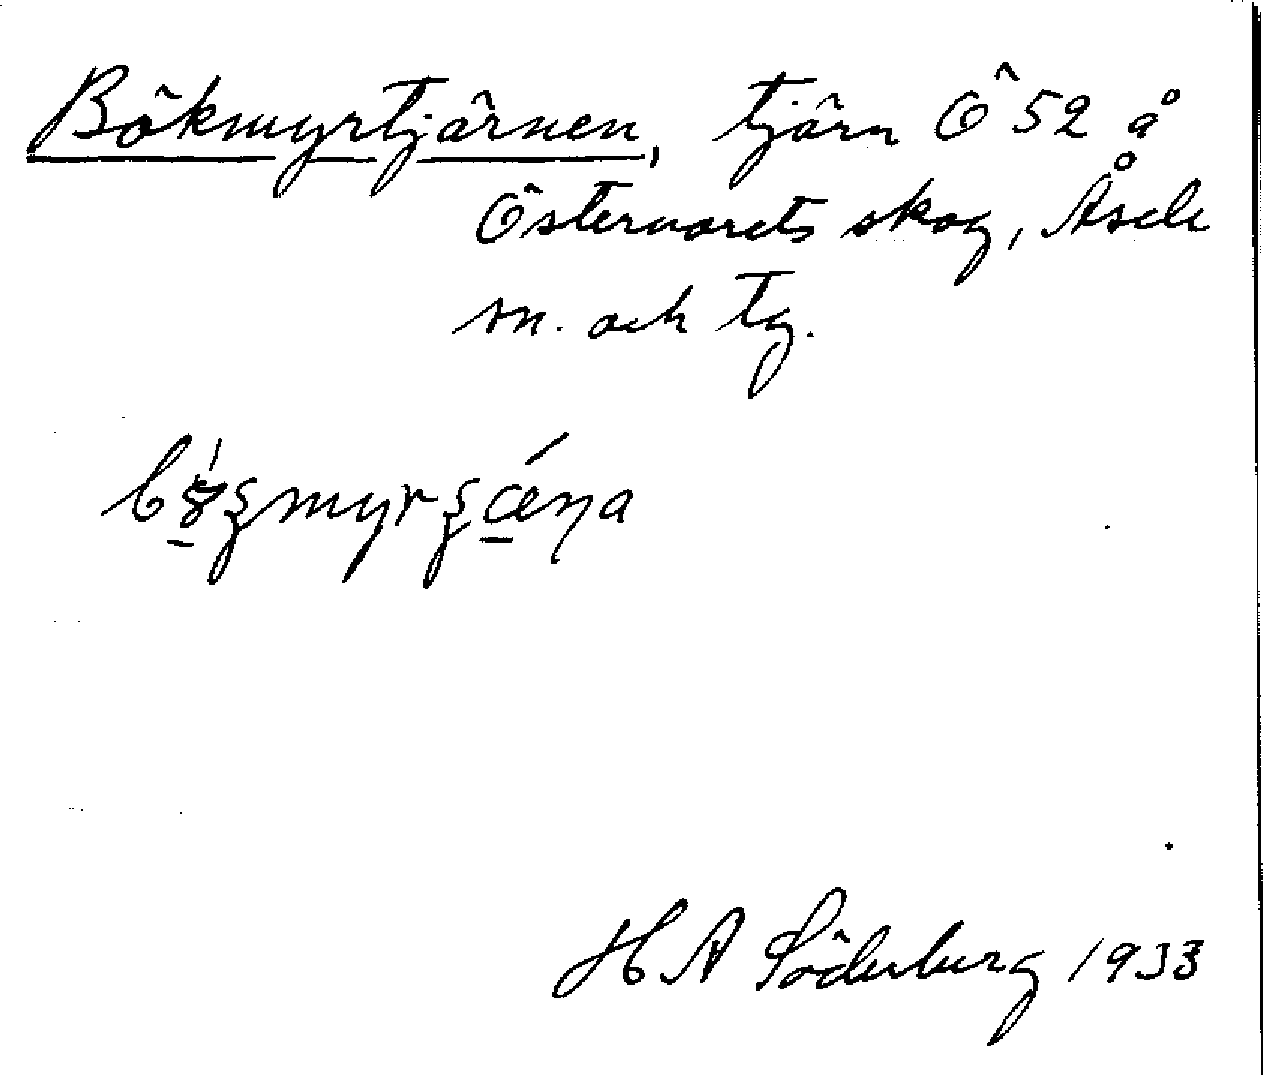 Bökmyrtjärnen, tjärn Ö 52 å
Östernorets skog, Åsele
sn. och tg.
H A Söderberg 1933